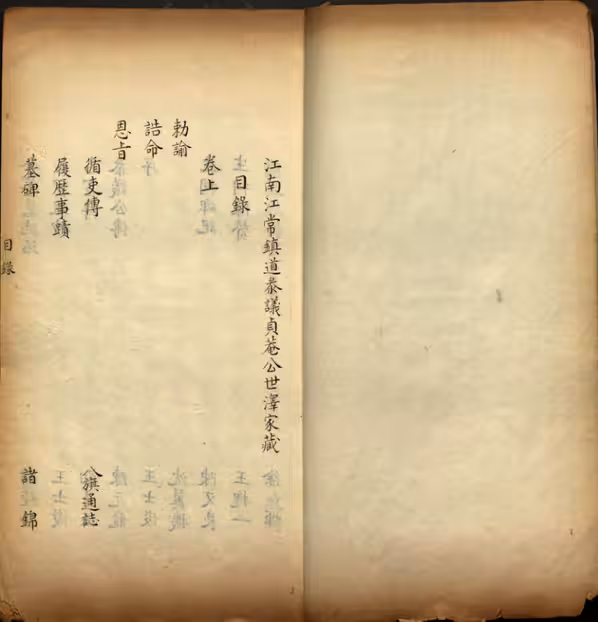 江南江常鎮道叅議貞菴公世澤家藏
目錄
卷上
勅諭
誥命
恩旨
循吏傳 八旗通誌
履歷事蹟
墓碑 諸錦
目錄